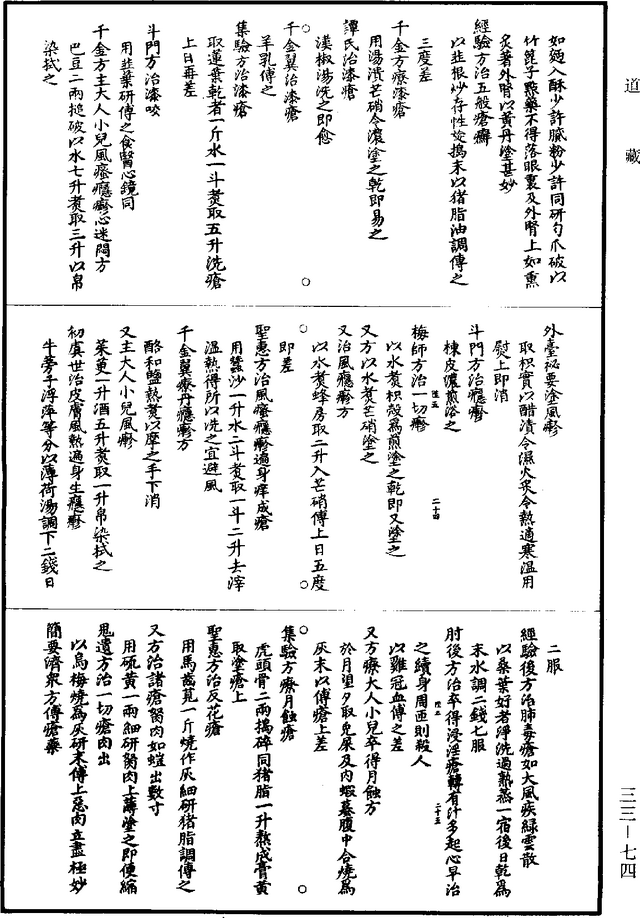 道藏
如麵入酥少許膩粉少許同研勻爪破以
竹篦子點藥不得落眼裏及外腎上如熏
炙著外腎以黃丹塗甚妙
經驗方治五般瘡癬
以韭根炒存性旋搗末以猪脂油調傅之
三度差
千金方療漆瘡
用湯漬芒硝令濃塗之乾即易之
譚氏治漆瘡
漢椒湯洗之即愈
千金翼治漆瘡
羊乳傅之
集驗方治漆瘡
取蓮葉乾者一斤水一斗煑取五升洗瘡
上日再差
斗門方治漆咬
用韭葉研傅之食醫心鏡同
千金方主大人小兒風瘙癮疹心迷悶方
巴豆二兩搥破以水七升煑取三升以帛
染拭之
外臺祕要塗風疹
取枳實以醋漬令濕火炙令熱適寒溫用
熨上即消
斗門方治癮疹
楝皮濃煎浴之
梅師方治一切疹
陸五
二十四
以水煑枳殼爲煎塗之乾即又塗之
又方以水煑芒硝塗之
又治風癮疹方
以水煑蜂房取二升入芒硝傅上日五度
即差
聖惠方治風瘙癮疹遍身痒成瘡
用蠶沙一升水二斗煑取一斗二升去滓
溫熱得所以洗之宜避風
千金翼療丹癮疹方
酪和鹽熱煑以摩之手下消
又主大人小兒風疹
茱萸一升酒五升煑取一升帛染拭之
初虞世治皮膚風熱遍身生癮疹
牛蒡子浮萍等分以薄荷湯調下二錢日
二服
經驗後方治肺毒瘡如大風疾綠雲散
以桑葉好者淨洗過熟蒸一宿後日乾爲
末水調二錢七服
肘後方治卒得浸淫瘡轉有汁多起心早治
陸五
二十五
之續身周匝則殺人
以雞冠血傅之差
又方療大人小兒卒得月蝕方
於月望夕取兔屎及內蝦蟇腹中合燒爲
灰末以傅瘡上差
集驗方療月蝕瘡
虎頭骨二兩搗碎同猪脂一升熬成膏黃
取塗瘡上
聖惠方治反花瘡
用馬齒莧一斤燒作灰細研猪脂調傅之
又方治諸瘡胬肉如蟻出數寸
用硫黃一兩細研胬肉上薄塗之即便縮
鬼遺方治一切瘡肉出
以烏梅燒爲灰研末傅上惡肉立盡極妙
簡要濟衆方傅瘡藥
三三—七四